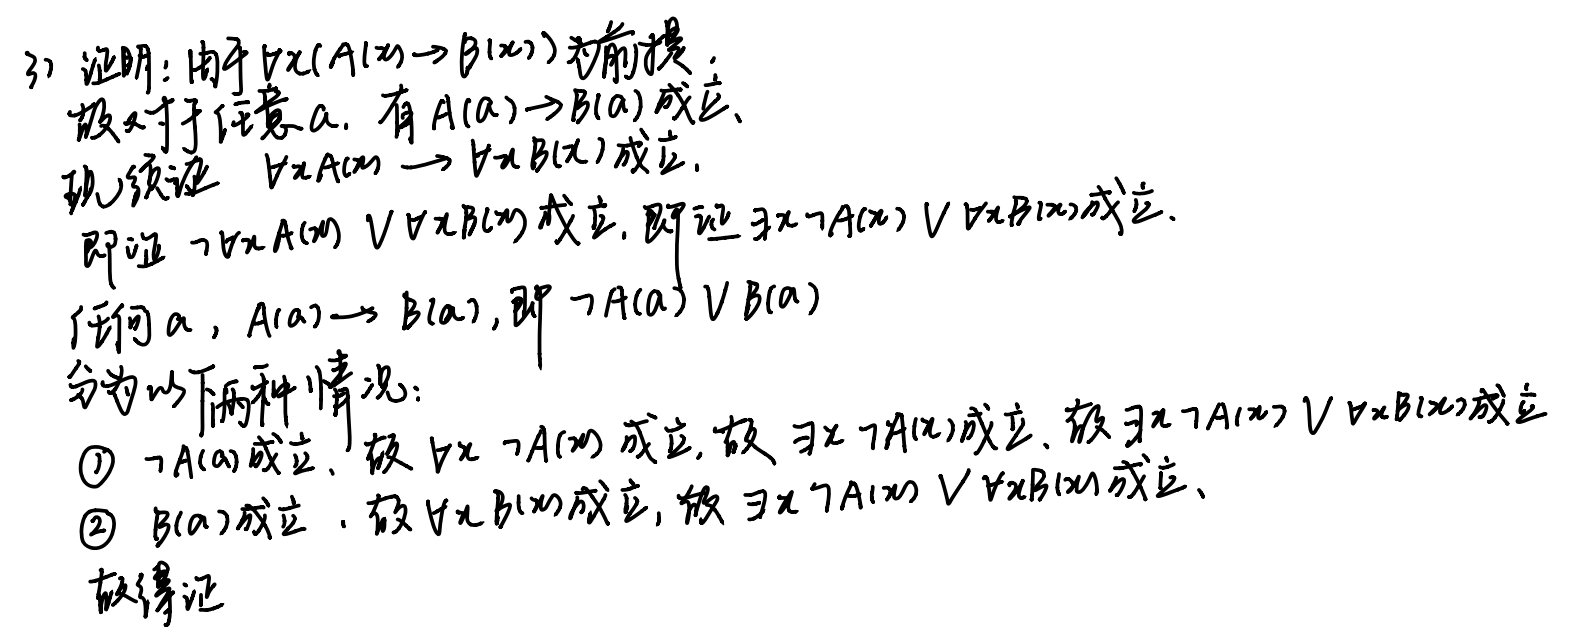 3) 证明：由于∀x(A(x)→B(x))为前提，
故对于任意a，有A(a)→B(a)成立、
现须证 ∀xA(x)→∀xB(x)成立.
即证 ¬∀xA(x)∨∀xB(x)成立，即证∃x¬A(x)∨∀xB(x)成立.
任何a，A(a)→B(a)，即¬A(a)∨B(a)
分为以下两种情况：
① ¬A(a)成立、故∀x¬A(x)成立，故∃x¬A(x)成立、故∃x¬A(x)∨∀xB(x)成立
② B(a)成立．故∀xB(x)成立，故∃x¬A(x)∨∀xB(x)成立、
故得证